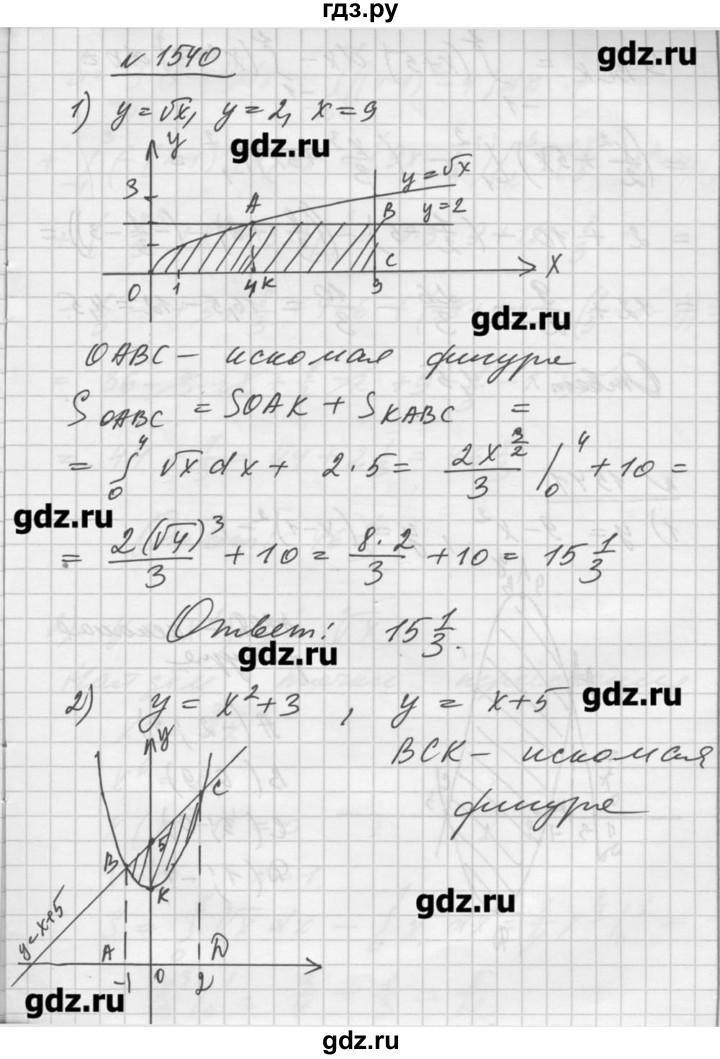 гдз.ру
gdz.ru
№ 1540
1) y = √x, y = 2, x = 9
gdz.ru
y
3
A
y = √x
B
y = 2
C
0 1 4 K 9 x
gdz.ru
OABC – искомая фигура
S OABC = SOAK + S KABC =
= ∫₀⁴ √x dx + 2·5 = 2x^(3/2)/3 |₀⁴ + 10 =
gdz.ru
= 2(√4)³/3 + 10 = 8·2/3 + 10 = 15 1/3
Ответ: 15 1/3.
gdz.ru
2) y = x² + 3, y = x+5
gdz.ru
BCK – искомая
фигура
y
C
5
B
K
y=x+5
A
D
-1 0 2
gdz.ru
gdz.ru
gdz.ru